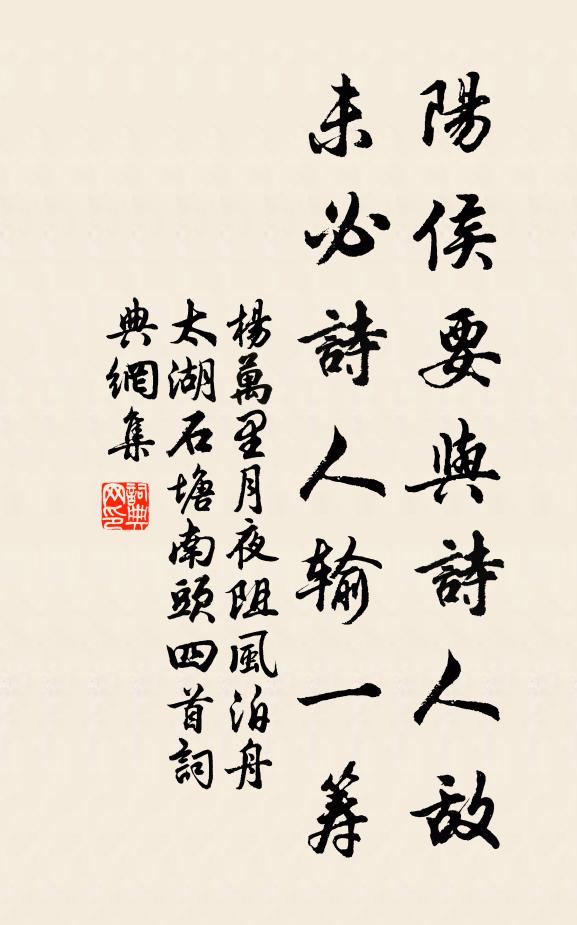 陽侯要與詩人敵
未必詩人輸一筹
楊萬里月夜阻風泊舟
太湖石塘南頭四首詞
典網集
詞典
网印